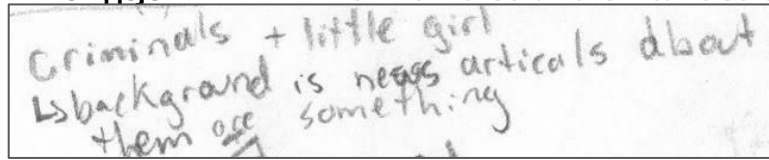 criminals + little girl
↳ background is news articals about
them or something